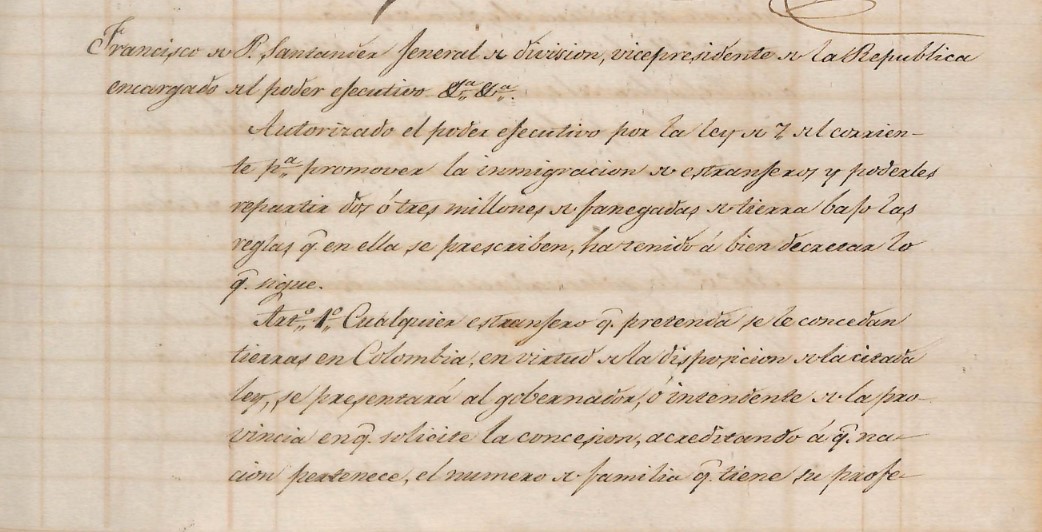 Francisco de P. Santander Jeneral de division, vicepresidente de la Republica
encargado del poder ejecutivo &ª &ª.
Autorizado el poder ejecutivo por la ley de 7 del corrien-
te pª promover la inmigracion de estranjeros y poderles
repartir dos ó tres millones de fanegadas de tierra bajo las
reglas q. en ella se prescriben, ha tenido á bien decretar lo
q. sigue.
Artº 1º Cualquier estranjero q. pretenda se le concedan
tierras en Colombia, en virtud de la disposicion de la citada
ley, se presentará al gobernador, ó intendente de la pro
vincia en q. solicite la concesion, acreditando á q. na-
cion pertenece, el numero de familia q. tiene su profe-